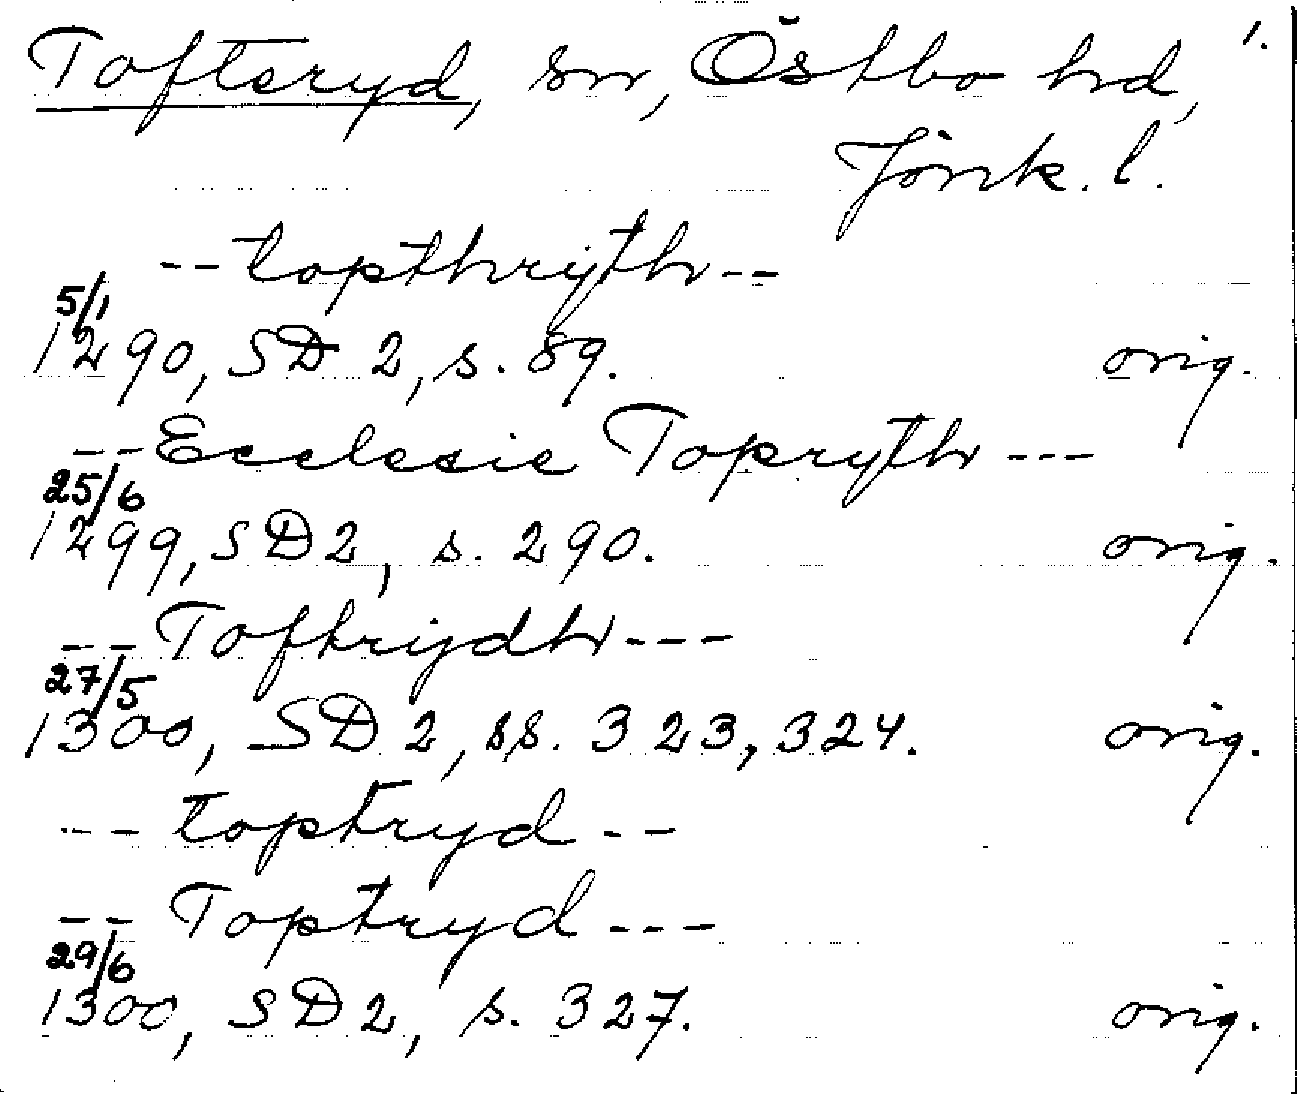 Tofteryd, sn, Östbo hd, 1.
Jönk. l.
-- topthryth --
5/1
1290, SD 2, s. 89. orig.
-- Ecclesie Topryth ---
25/6
1299, SD 2, s. 290. orig.
--- Toftrydh ---
27/5
1300, SD 2, ss. 323, 324. orig.
--- toptryd --
-- Toptryd ---
29/6
1300, SD 2, s. 327. orig.